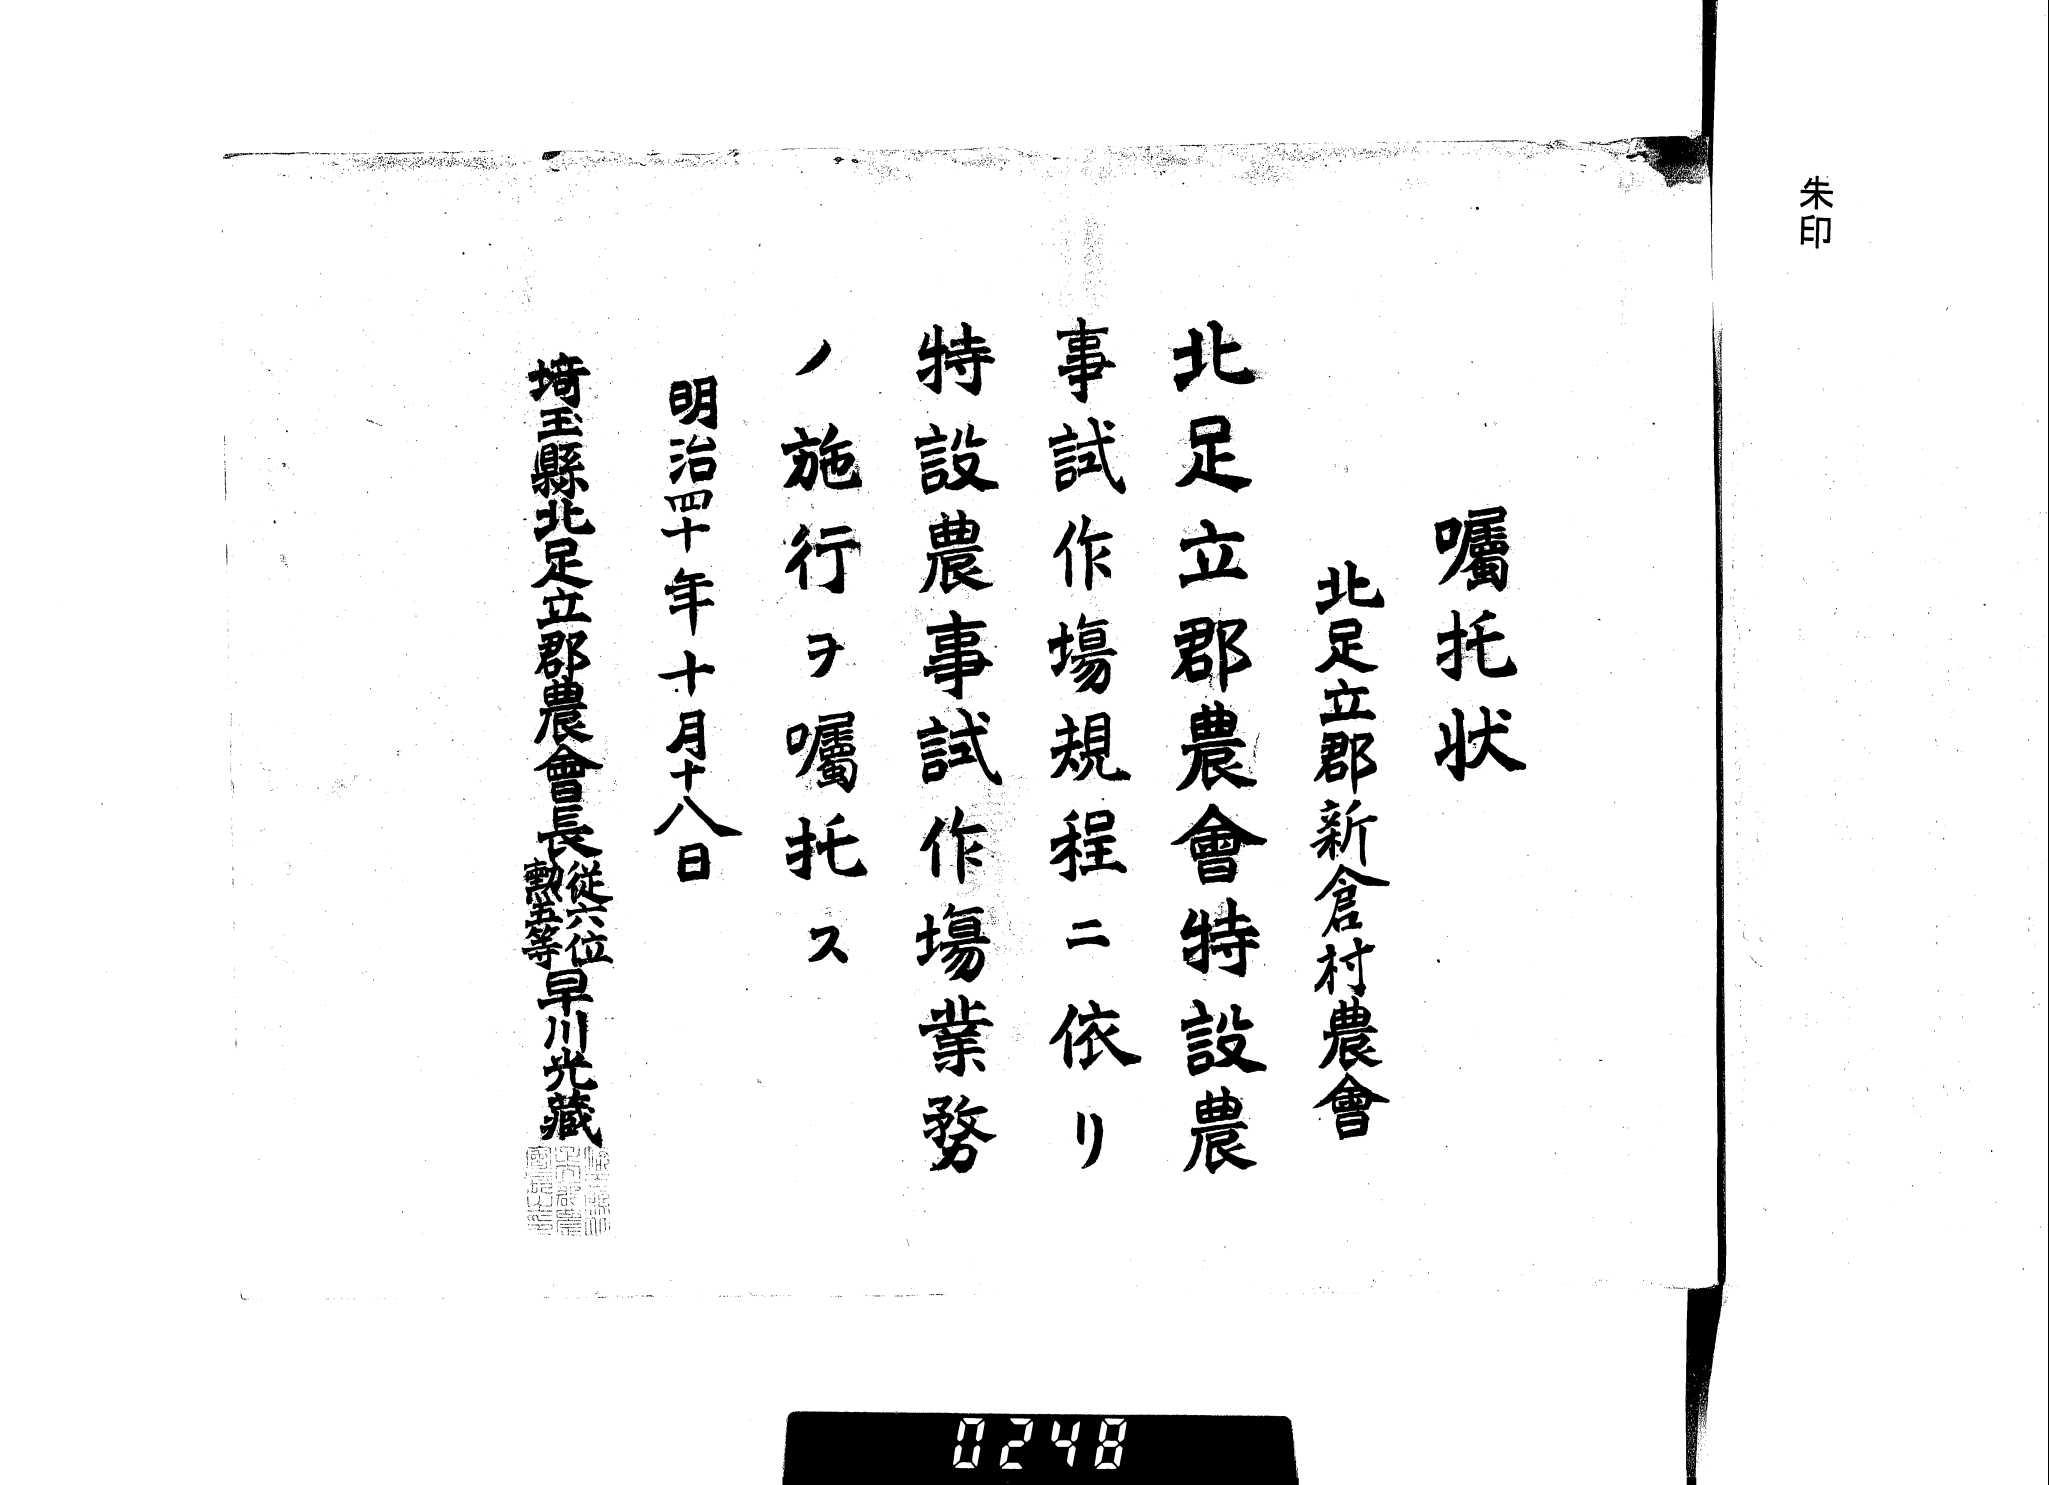 朱印
囑托状
北足立郡新倉村農會
北足立郡農會特設農
事試作塲規程ニ依リ
特設農事試作塲業務
ノ施行ヲ囑托ス
明治四十年十月十八日
埼玉縣北足立郡農會長從六位勲五等早川光藏
0248